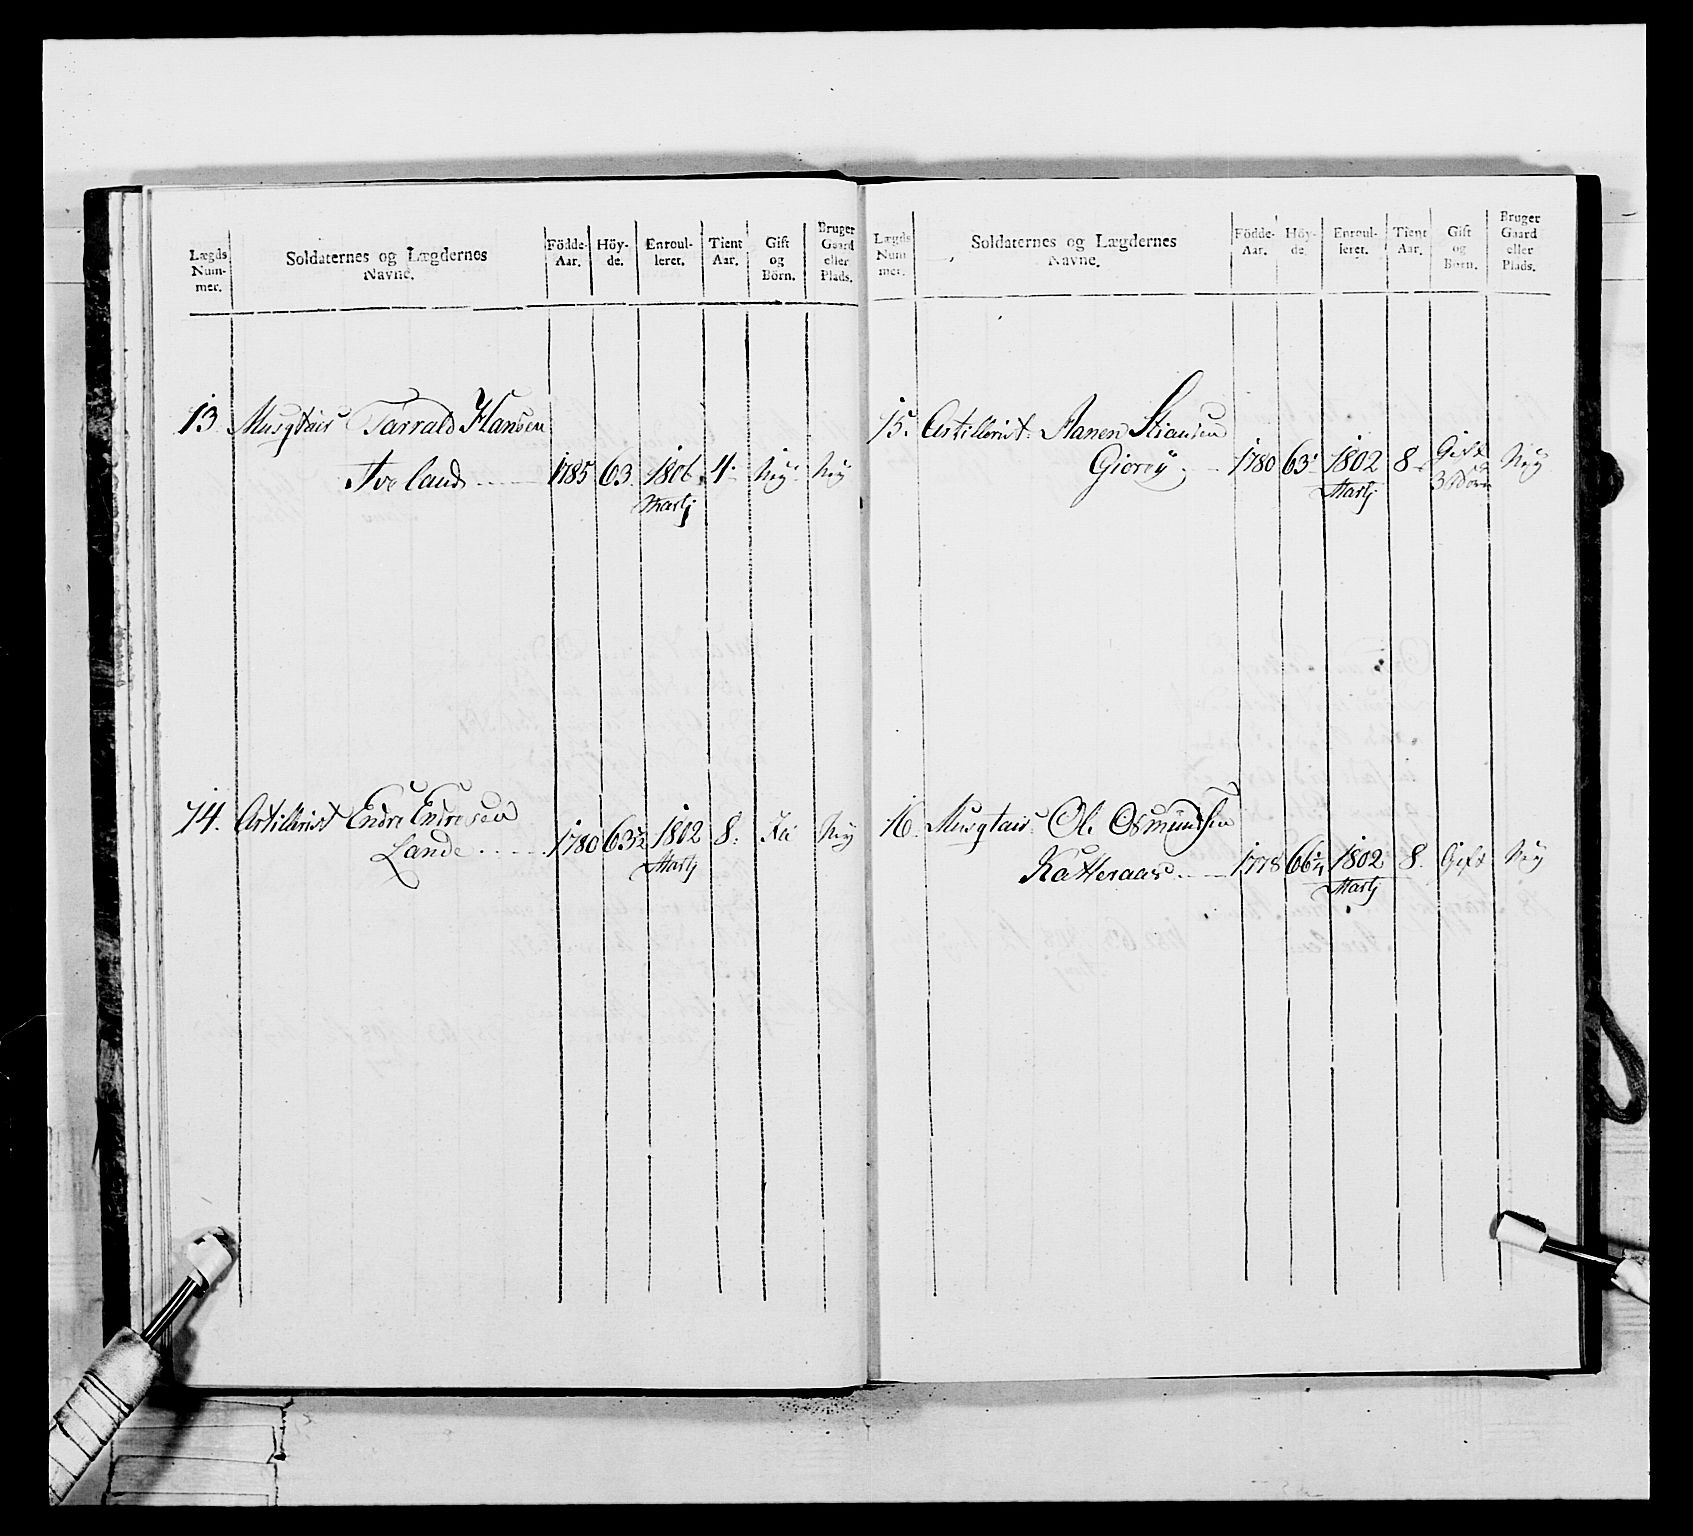 Lægds Num- mer.
Soldaternes og Lægdernes Navne.
Födde- Aar.
Höy- de.
Enroul- leret.
Tient Aar.
Gift og Börn.
Bruger Gaard eller Plads.
13. Musqtair Tarrald Hansen
Aveland 1785 63. 1806. 4. Nÿ Nÿ
Martj
14. Artillerist Endre Endresen
Lande 1780 63½ 1802 8. Nÿ
Martj
Lægds Num mer.
Soldaternes og Lægdernes Navne.
Födde- Aar.
Höy- de
Enroul- leret.
Tient Aar.
Gift og Börn.
Bruger Gaard eller Plads.
15. Artillerist Aanen Stiansen Gift
Giorvÿ 1780 63. 1802 8. 3 Börn Nÿ
Martj
16. Musqtair Ole Osmundsen
Katteraas 1778 66¼ 1802 8. Gift Nÿ
Martj